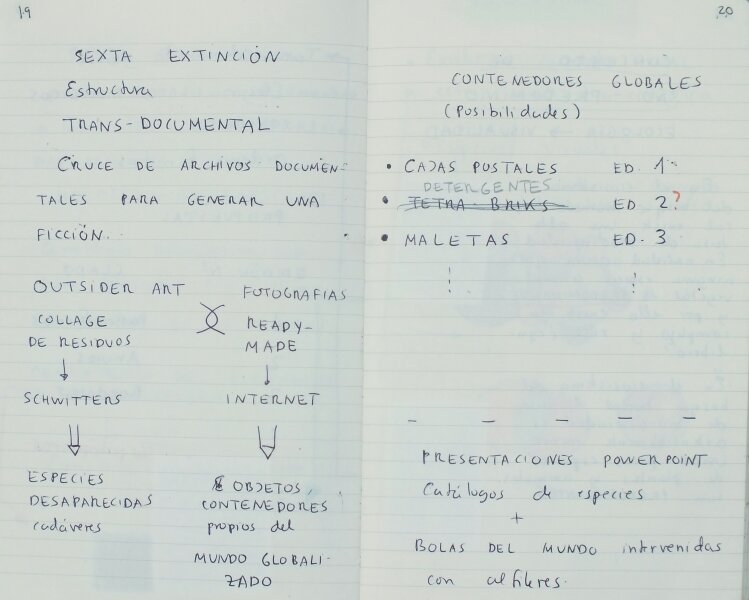 19
SEXTA EXTINCIÓN
Estructura
TRANS-DOCUMENTAL
CRUCE DE ARCHIVOS DOCUMEN-
TALES PARA GENERAR UNA
FICCIÓN.
OUTSIDER ART
COLLAGE
DE RESIDUOS
SCHWITTERS
ESPECIES
DESAPARECIDAS
cadáveres
FOTOGRAFIAS
READY-
MADE
INTERNET
OBJETOS,
CONTENEDORES
propios del
MUNDO GLOBALI-
ZADO
20
CONTENEDORES GLOBALES
(Posibilidades)
• CAJAS POSTALES ED. 1
DETERGENTES
• TETRA-BRIKS ED. 2?
• MALETAS ED. 3
PRESENTACIONES POWERPOINT
Catálogos de especies
+
BOLAS DEL MUNDO intervenidas
con alfileres.